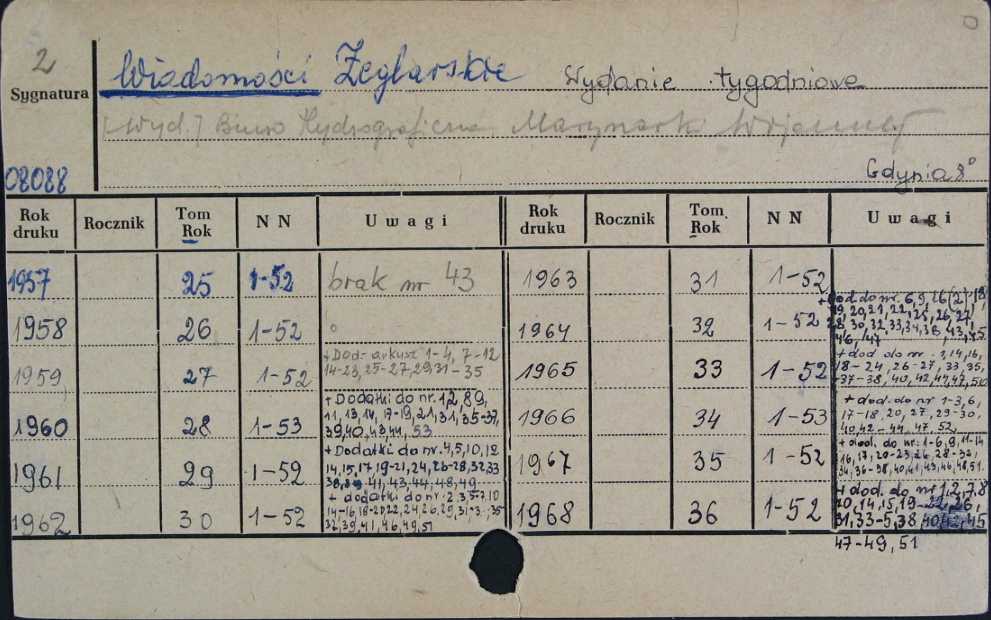 2
Sygnatura
08088
Wiadomości Żeglarskie Wydanie tygodniowe
[Wyd.] Biuro Hydrograficzne Marynarki Wojennej
Gdynia 8°
Rok druku Rocznik Tom Rok NN Uwagi Rok druku Rocznik Tom Rok NN Uwagi
1957 25 1-52 brak nr 43
1958 26 1-52
1959 27 1-52 + Dod- arkusz 1-4, 7-12
14-23, 25-27, 29, 31-35
1960 28 1-53 + Dodatki do nr. 1, 2, 8, 9,
11, 13, 14, 17-19, 21, 31, 35-37,
39, 40, 43, 44, 53
1961 29 1-52 + Dodatki do nr. 4, 5, 10, 12
14, 15, 17, 19-21, 24, 26-28, 32, 33
41, 43, 44, 48, 49
1962 30 1-52 + dodatki do nr. 2, 3, 5-7, 10
32, 39, 41, 46, 49, 51
1963 31 1-52
1964 32 1-52 + dod. do nr. 6, 9, 16(2)-18
28, 30, 32, 33, 34, 36, 43, 45
46, 47
1965 33 1-52 + dod. do nr
18-24, 26-27, 33, 35,
37-38, 40, 42, 44, 47,
1966 34 1-53 + dod. do nr 1-3, 6,
17-18, 20, 27, 29-30,
40, 42-44, 47, 52
1967 35 1-52 + dod. do nr. 1-6, 9, 11-14
16, 17, 20-23, 26, 28-32,
34, 36-38, 40, 41, 43, 46, 48, 51.
1968 36 1-52 + dod. do nr 1, 2, 7, 8
10, 14, 15, 19-22, 26,
31, 33-5, 38, 40, 42, 45
47-49, 51